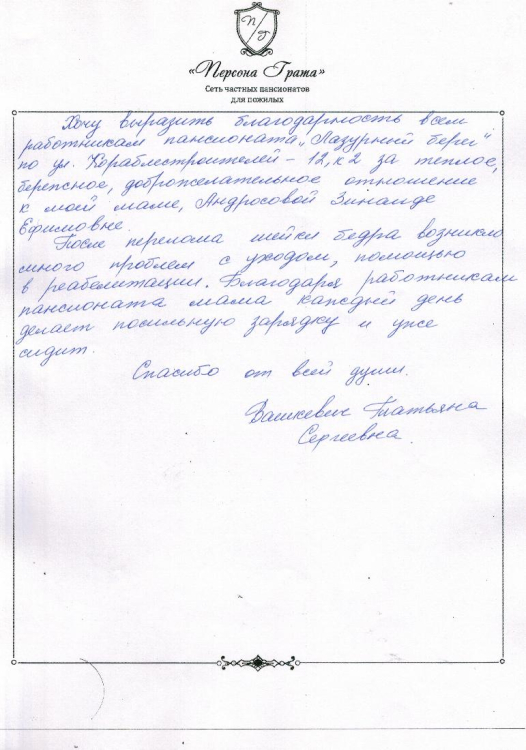 П/Г
«Персона Грата»
Сеть частных пансионатов
для пожилых
Хочу выразить благодарность всем
работникам пансионата „Лазурный берег"
по ул. Кораблестроителей – 12, к2 за теплое,
бережное, доброжелательное отношение
к моей маме, Андросовой Зинаиде
Ефимовне.
После перелома шейки бедра возникло
много проблем с уходом, помощью
в реабелитации. Благодаря работникам
пансионата мама каждый день
делает посильную зарядку и уже
сидит.
Спасибо от всей души.
Вашкевич Татьяна
Сергеевна.